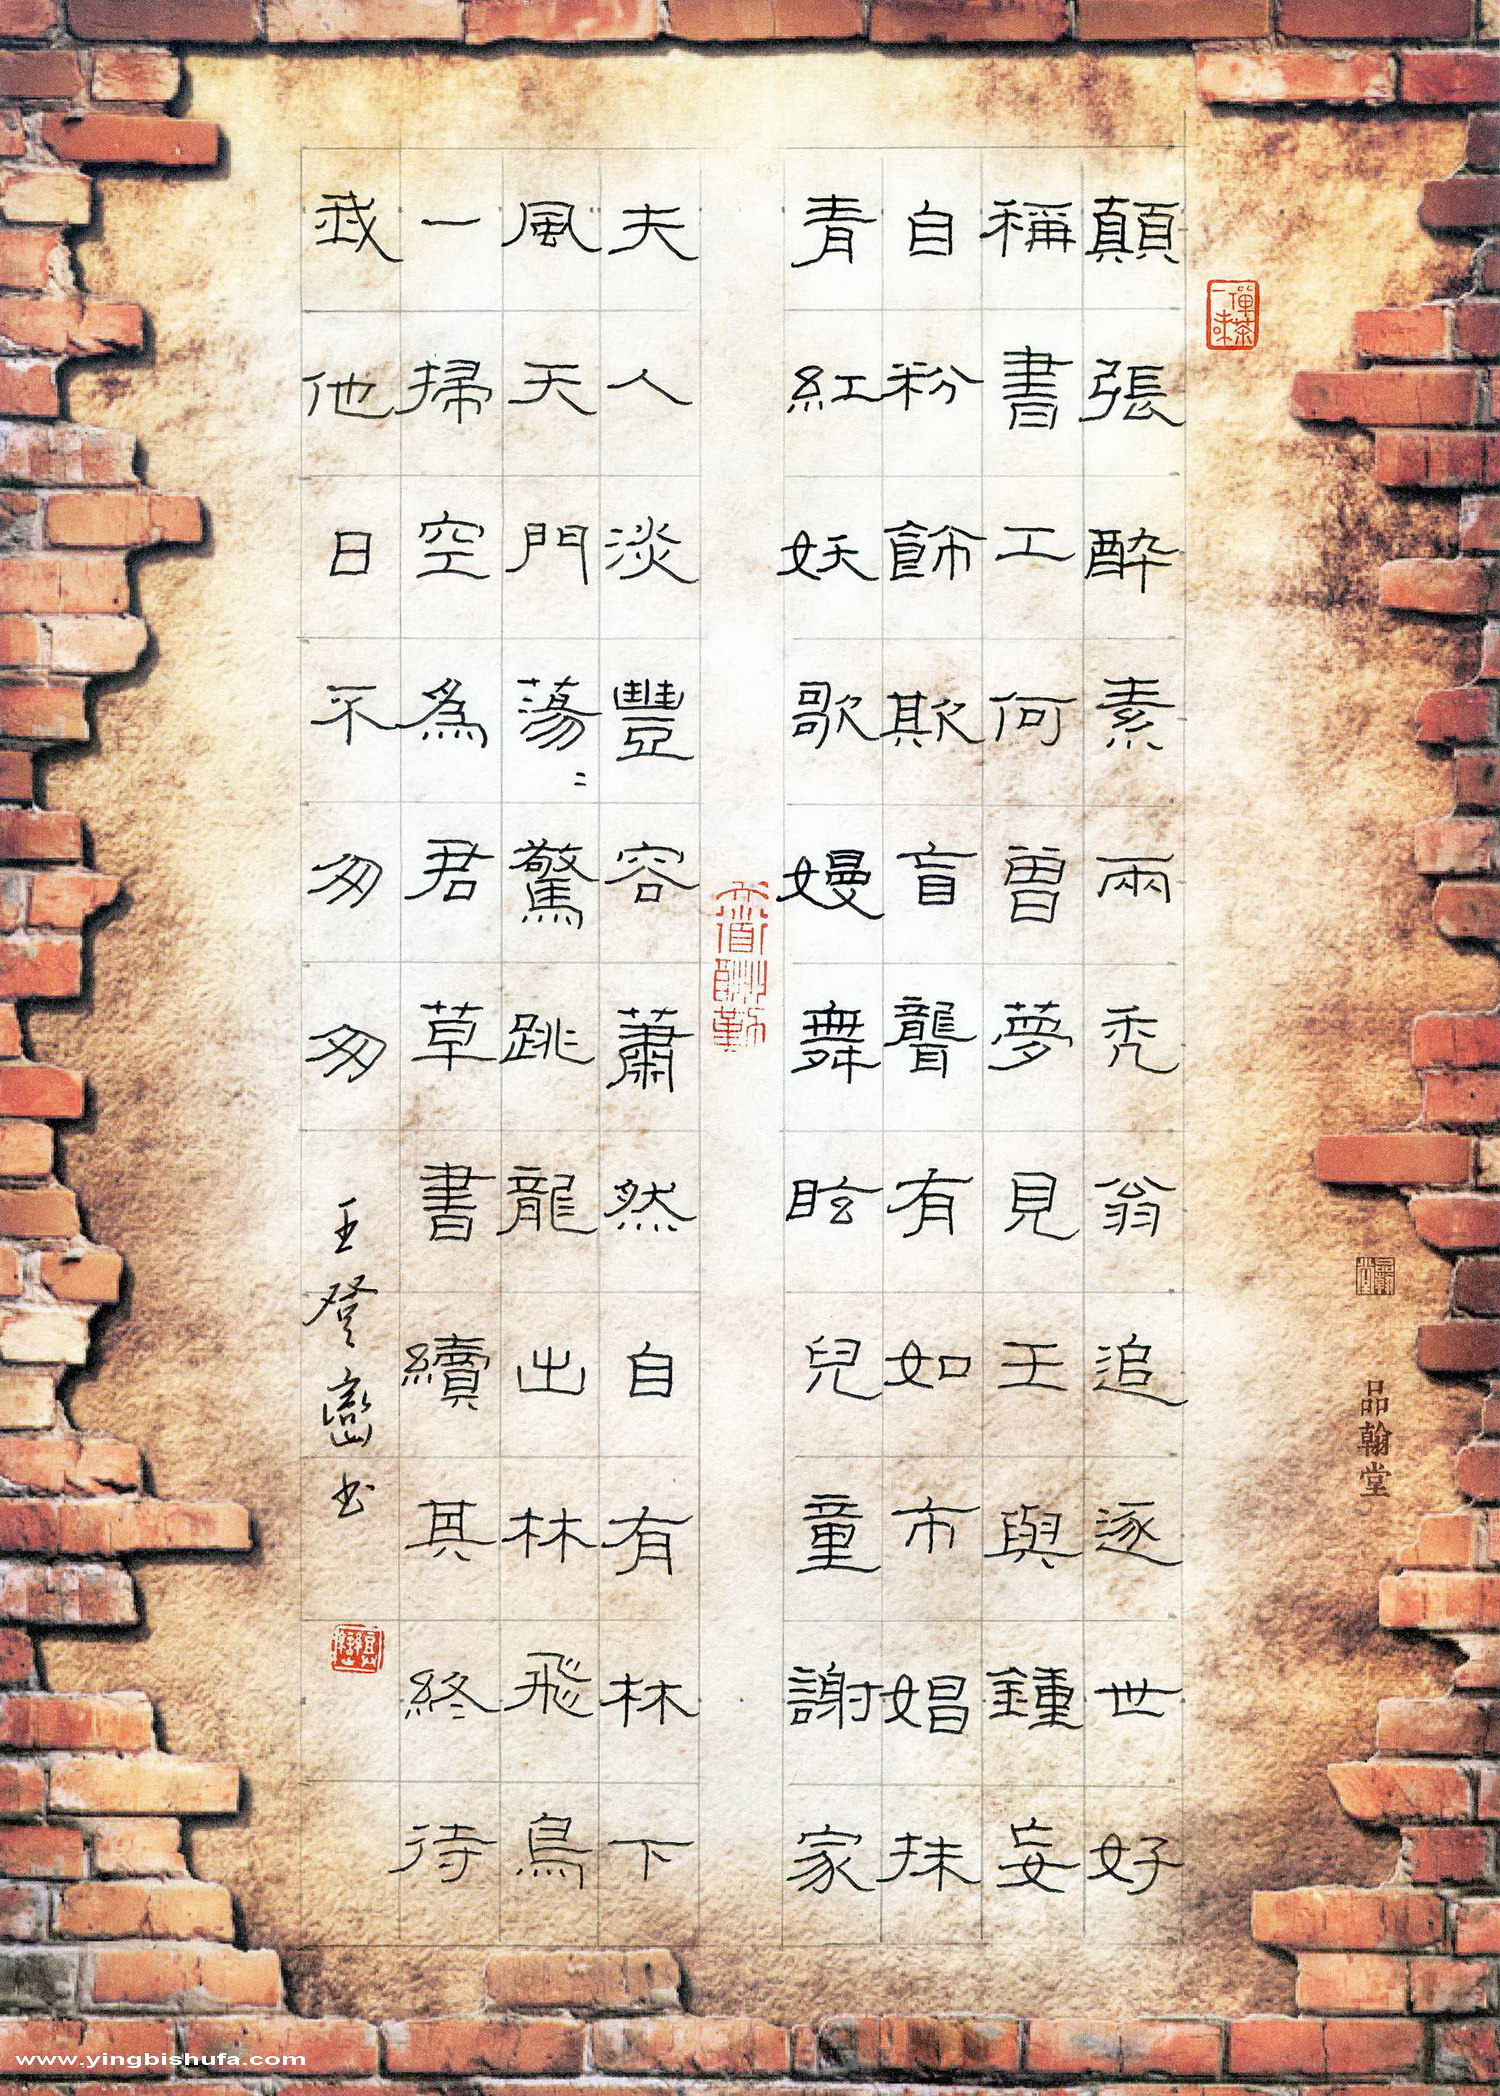 顛張醉素兩禿翁追逐世好
稱書工何曾夢見王與鍾妄
自粉飾欺盲聾有如市娼抹
青紅妖歌嫚舞眩兒童謝家
夫人淡豐容蕭然自有林下
風天門蕩〻驚跳龍出林飛鳥
一掃空為君草書續其終待
我他日不匆匆
王登巒书
禪茶一味
天道酬勤
品翰堂
www.yingbishufa.com